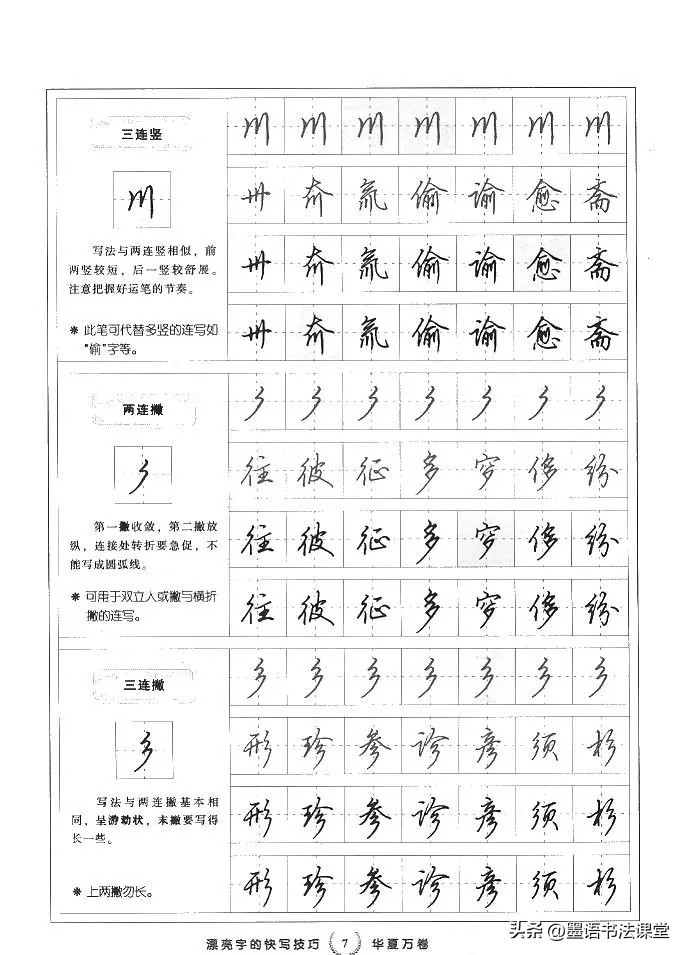 三连竖
川
写法与两连竖相似，前
两竖较短，后一竖较舒展。
注意把握好运笔的节奏。
※ 此笔可代替多竖的连写如
“偷”字等。
川 川 川 川 川 川 川
卅 夼 氚 偷 谕 愈 斋
卅 夼 氚 偷 谕 愈 斋
卅 夼 氚 偷 谕 愈 斋
两连撇
第一撇收敛，第二撇放
纵，连接处转折要急促，不
能写成圆弧线。
※ 可用于双立人或撇与横折
撇的连写。
往 彼 征 多 穸 侈 纷
往 彼 征 多 穸 侈 纷
往 彼 征 多 穸 侈 纷
三连撇
写法与两连撇基本相
同，呈游动状，末撇要写得
长一些。
※ 上两撇勿长。
形 珍 参 诊 彦 须 杉
形 珍 参 诊 彦 须 杉
形 珍 参 诊 彦 须 杉
漂亮字的快写技巧 7 华夏万卷
头条@墨语书法课堂